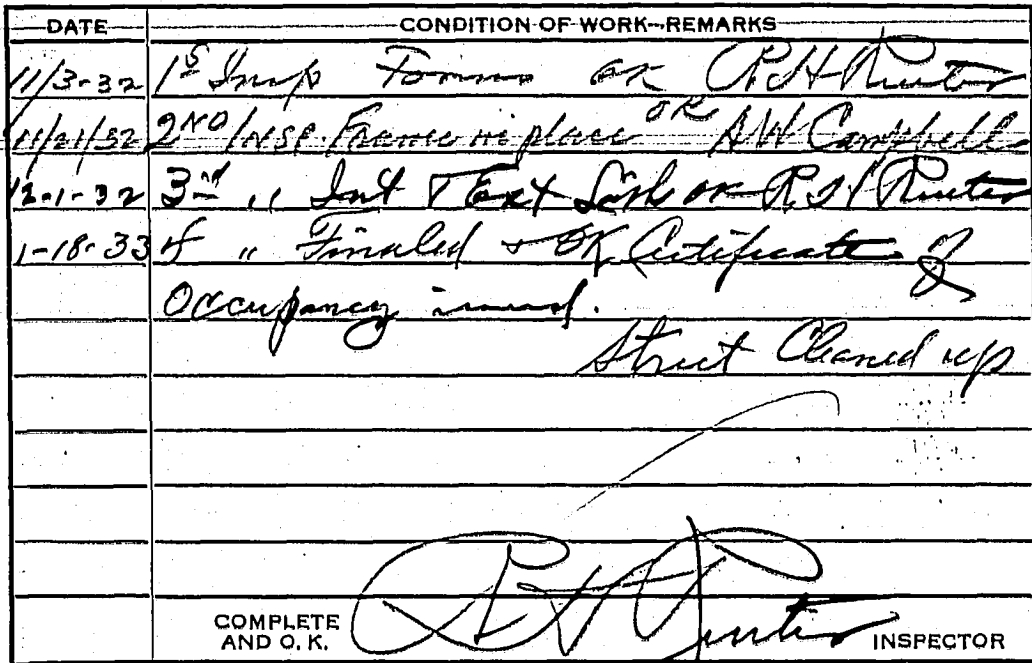 DATE CONDITION OF WORK--REMARKS
11/3-32 1S Insp Forms OK R.H.
11/21/32 2ND INSP. Frame in place OK A.W. Campbell
12-1-32 3rd " Int & Ext Lath OK R.H.
1-18-33 4 " Finaled & OK Certificate of
Occupancy issued.
Street Cleaned up
COMPLETE
AND O. K. R H INSPECTOR